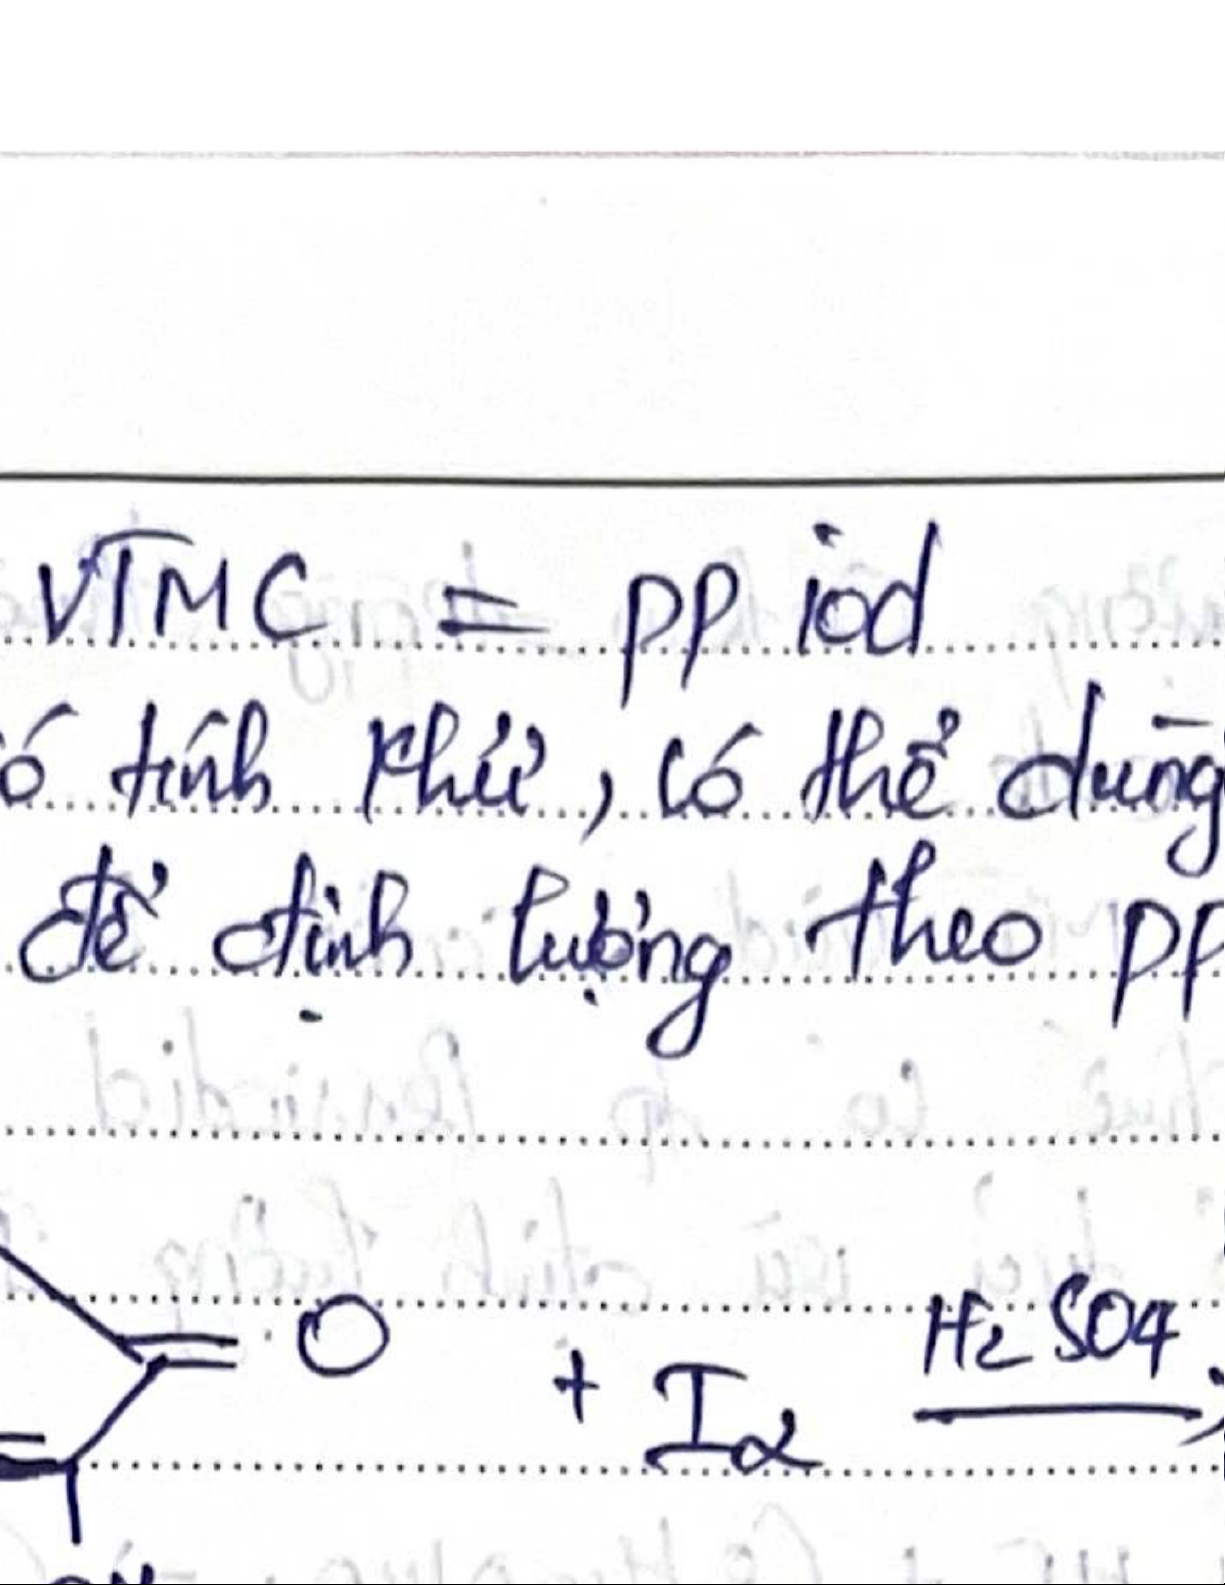 VTMC = pp iod
ó tính khử, có thể dùng
để định lượng theo pp
O + I2 H2SO4
OH